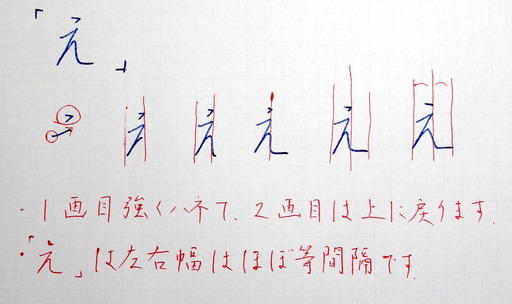 「え」
え え え え え
・1画目強くハネて、2画目は上に戻ります。
・「え」は左右幅はほぼ等間隔です。